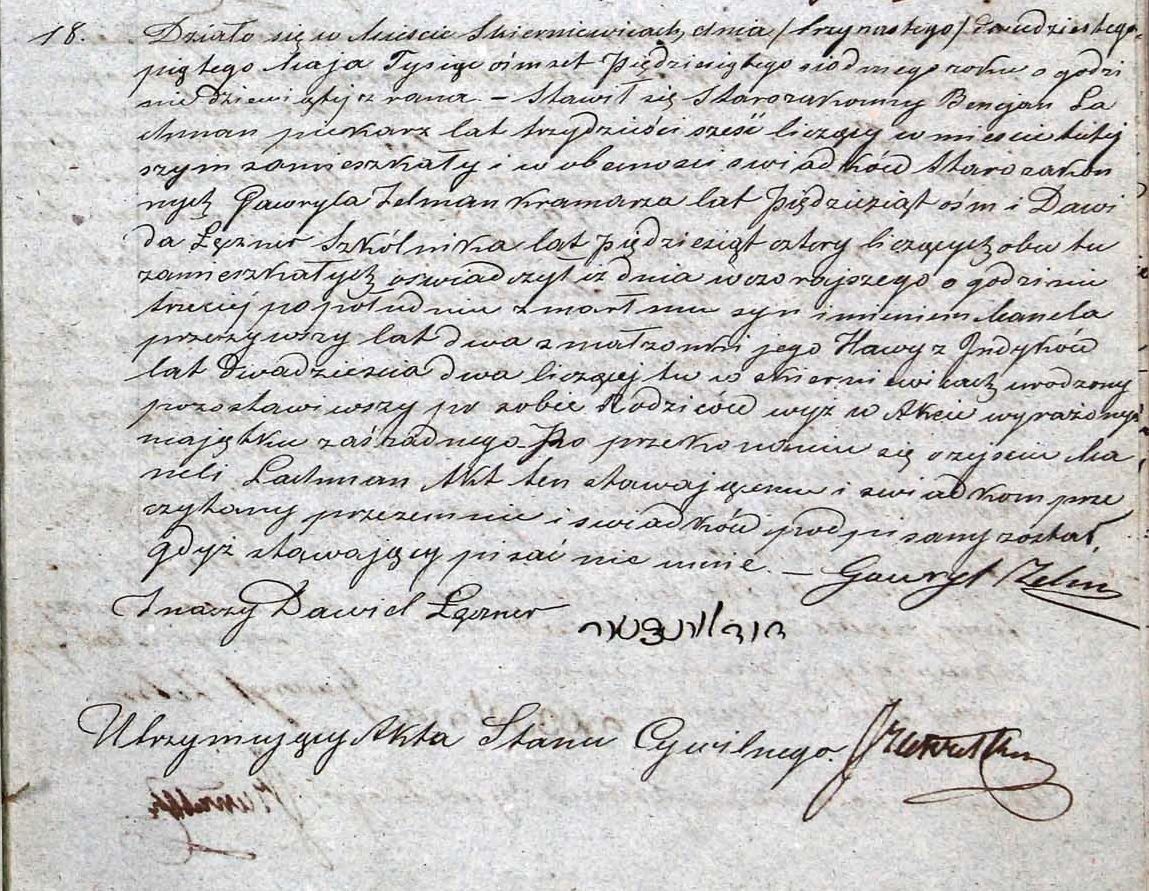 18. Działo się w Mieście Skierniewicach, dnia /trzynastego/ dwudziestego
piątego Maja Tysiąc ośmset Pięćdziesiątego siódmego roku o godzi
nie dziewiątej z rana. – Stawił się Starozakonny Benjan La
chman piekarz lat trzydzieści sześć liczący w mieście tutej
szym zamieszkały i w obecności świadków Starozakon
nych Gawryla Zelman kramarza lat Pięćdziesiąt ośm i Dawi
da Łęzner Szkólnika lat pięćdziesiąt cztery liczących obu tu
zamieszkałych, oświadczył iż dnia wczorajszego o godzinie
trzeciej po południu zmarł mu syn imieniem Manela
przeżywszy lat dwa z małżonki jego Hawy z Indyków
lat dwadzieścia dwa liczącej tu w Skierniewicach urodzony
pozostawiwszy po sobie Rodziców wyż w Akcie wyrażonych
majątku zaś żadnego. Po przekonaniu się o zejściu Ma
neli Lachman Akt ten stawającemu i świadkom prze
czytany przezemnie i świadków podpisany został,
gdyż stawający pisać nie umie. – Gawryl Zelm
Znaczy Dawid Łęzner
Utrzymujący Akta Stanu Cywilnego.